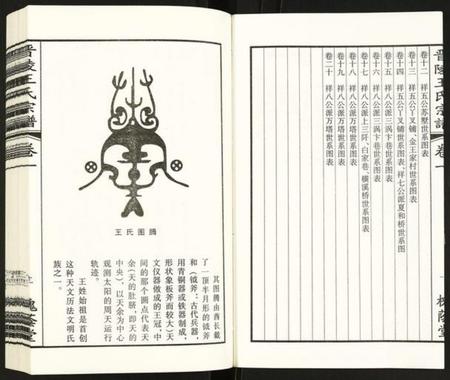 晋陵王氏宗谱
卷一
卷十二 祥五公苏墅世系图表
卷十三 祥五公丫叉铺、金王家村世系图表
卷十四 祥五公丫叉铺世系图表、祥七公派夏和桥世系图
卷十五 祥八公派三涡卞巷世系图表
卷十六 祥八公派三涡卞巷世系图表
卷十七 祥八公派上三阡、白家巷、横溪桥世系图表
卷十八 祥八公派万塔世系图表
卷十九 祥八公派万塔世系图表
卷二十 祥八公派万塔世系图表
槐荫堂
王氏图腾
其图腾由酋长戴
了一顶半月形的钺斧
和（钺斧：古代兵器，
形状象板斧而较大）天
用青铜器或铁器制成，
文仪器做成的王冠，中
间的那个圆点代表天
余（天的肚脐，即天的
中央），以天余为中心
观测太阳的周天运行
轨迹。
王姓始祖是首创
这种天文历法文明氏
族之一。
晋陵王氏宗谱
卷一
槐荫堂